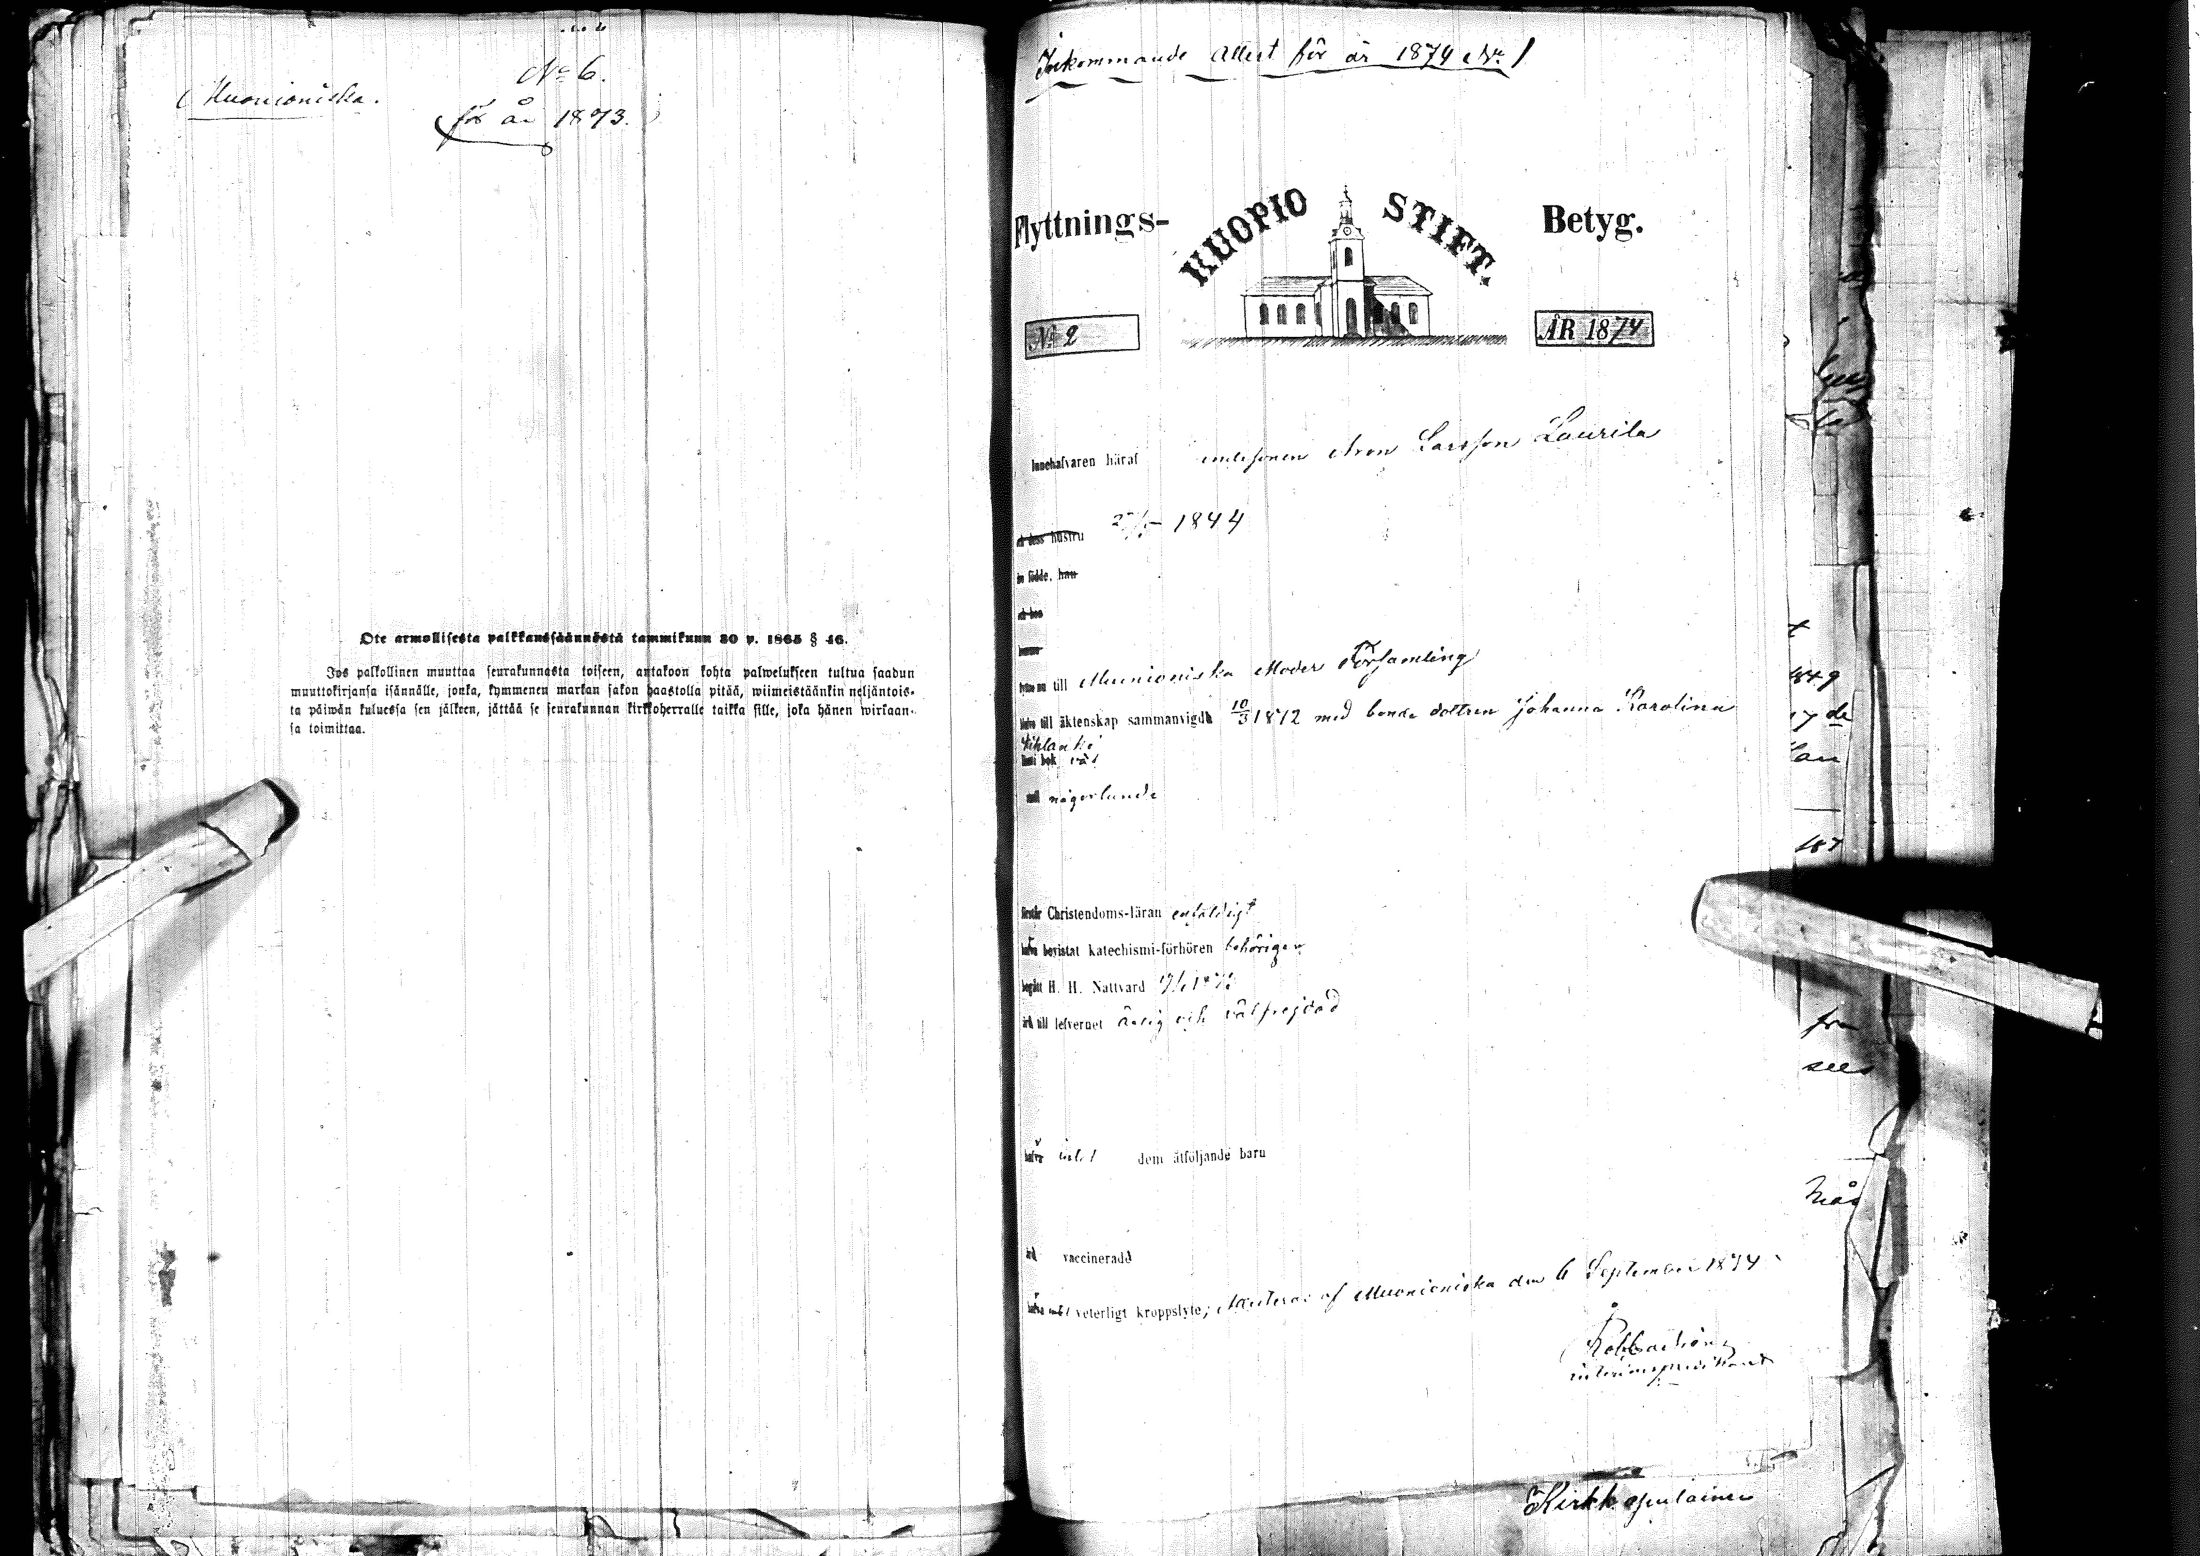 No 6.
Muonioniska.
för år 1873.
Ote armollisesta palkkaussäännöstä tammikuun 30 p. 1865 § 46.
Jos palkollinen muuttaa seurakunnasta toiseen, antakoon kohta palwelukseen tultua saadun
muuttokirjansa isännälle, jonka, kymmenen markan sakon haastolla pitää, wiimeistäänkin neljäntois-
ta päiwän kuluessa sen jälkeen, jättää se seurakunnan kirkkoherralle taikka sille, joka hänen wirkaan-
sa toimittaa.
Inkommande Attest för år 1874 No 1
Flyttnings- KUOPIO STIFT. Betyg.
No 2
ÅR 1874
Innehafvaren häraf Aron Larsson Laurila
och dess hustru 1844
är födde, han
och hon
till Muonioniska Moder Församling
till äktenskap sammanvigde 10/3 1872 med bonde dottren Johanna Karolina
bok väl
någorlunda
förstår Christendoms-läran enfaldigt
hafva bevistat katechismi-förhören behörigen
begått H. H. Nattvard
till lefvernet ärlig och välfrejdad
hafva dem åtföljande barn
vaccinerad
veterligt kroppslyte; Muonioniska den 6 September 1874